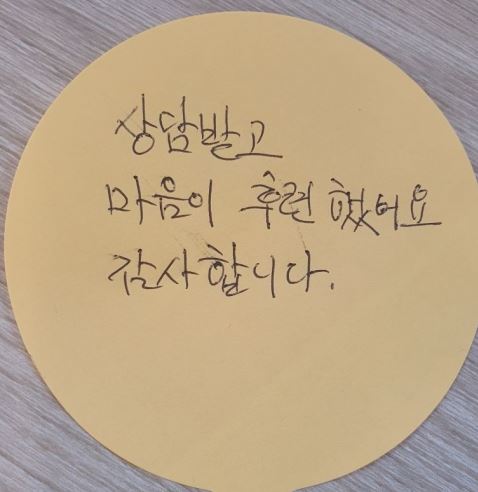 상담발고
마음이 후련 했어요
감사합니다.